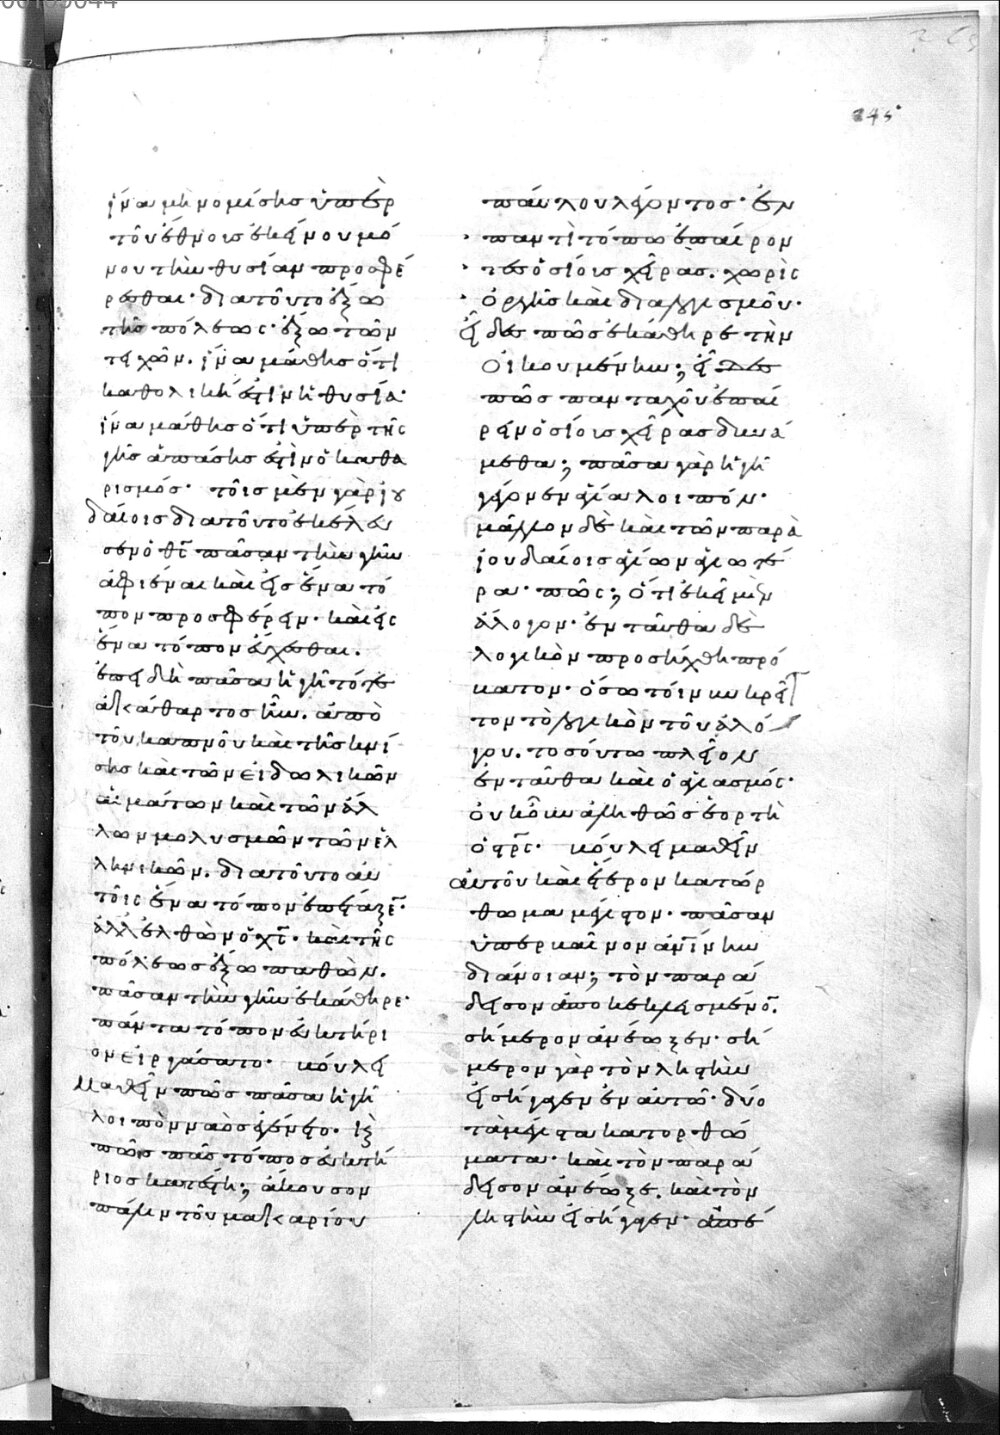 245
ἵνα μὴ νομίσης ὑπὲρ
τοῦ ἔθνους ἐκείνου μό
νου τὴν θυσίαν προσφέ
ρεσθαι· διατοῦτο ἔξω
τῆς πόλεως· ἔξω τῶν
τειχῶν. ἵνα μάθης ὅτι
καθολική ἐστιν ἡ θυσία·
ἵνα μάθης ὅτι ὑπὲρ τῆς
γῆς ἁπάσης ἐστὶν ὁ καθα
ρισμός· τοῖς μὲν γὰρ ἰου
δαίοις διατοῦτο ἐκέλευ
σεν ὁ θς πᾶσαν τὴν γῆν
ἀφιέναι καὶ εἰς ἕνα τό
πον προσφέρειν· καὶ εἰς
ἕνα τόπον εὔχεσθαι.
ἐπειδὴ πᾶσα ἡ γῆ τότε
ἀκάθαρτος ἦν. ἀπὸ
τοῦ καπνοῦ καὶ τῆς κνί
σης καὶ τῶν εἰδωλικῶν
αἱμάτων καὶ τῶν ἄλ
λων μολυσμῶν τῶν ἑλ
ληνικῶν. διατοῦτο αὐ
τοῖς ἕνα τόπον ἐπέταξεν·
ἀλλ' ἐλθὼν ὁ χς· καὶ τῆς
πόλεως ἔξω παθὼν.
πᾶσαν τὴν γῆν ἐκάθηρε·
πάντα τόπον εὐκτήρι
ον εἰργάσατο· βούλει
μαθεῖν πῶς πᾶσα ἡ γῆ
λοιπὸν ναὸς ἐγένετο. καὶ
πῶς πᾶς τόπος εὐκτή
ριος κατέστη; ἄκουσον
πάλιν τοῦ μακαρίου
παύλου λέγοντος· ἐν
παντὶ τόπω ἐπαίρον
τες ὁσίους χεῖρας. χωρὶς
ὀργῆς καὶ διαλογισμῶν·
εἶδες πῶς ἐκάθηρε τὴν
οἰκουμένην; εἶδες
πῶς πανταχοῦ ἐπαί
ρειν ὁσίους χεῖρας δυνά
μεθα; πᾶσα γὰρ ἡ γῆ
γέγονεν ἁγία λοιπόν·
μᾶλλον δὲ καὶ τῶν παρὰ
ἰουδαίοις ἁγίων ἁγιωτέ
ρα· πῶς; ὅτι ἐκεῖ μὲν
ἄλογον· ἐνταῦθα δὲ
λογικὸν προσήχθη πρό
βατον· ὅσω τοίνυν κρεῖτ
τον τὸ λογικὸν τοῦ ἀλό
γου. τοσούτω πλείων
ἐνταῦθα καὶ ὁ ἁγιασμός·
οὐκοῦν ἀληθῶς ἑορτὴ
ὁ στρς· βούλει μαθεῖν
αὐτοῦ καὶ ἕτερον κατόρ
θωμα μέγιστον· πᾶσαν
ὑπερβαῖνον ἀνίνην
διάνοιαν; τὸν παρά
δεισον ἀποκεκλεισμένον.
σήμερον ἀνέωξεν· σή
μερον γὰρ τὸν ληστὴν
εἰσήγαγεν ἐν αὐτῶ· δύο
τὰ μέγιστα κατορθώ
ματα· καὶ τὸν παρά
δεισον ἀνέωξε. καὶ τὸν
ληστὴν εἰσήγαγεν· ἀπέ